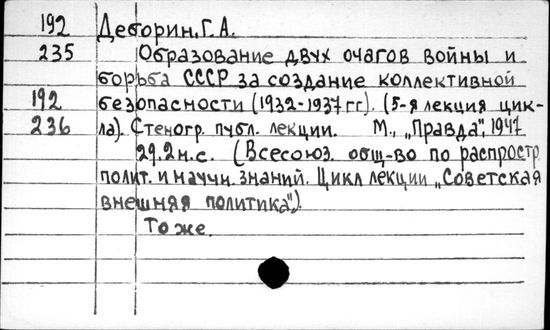 192 Деборин, Г. А.
235 Образование двух очагов войны и
борьба СССР за создание коллективной
192 безопасности (1932-1937 гг). (5-я лекция цик-
236 ла). Стеногр. публ. лекции. М., „Правда", 1947
29,2 н.с. (Всесоюз. общ-во по распростр
полит. и научн. знаний. Цикл лекции „Советская
внешняя политика").
То же.